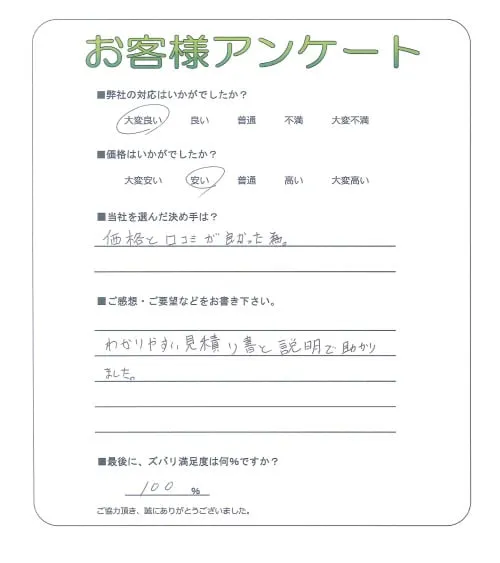 お客様アンケート
■弊社の対応はいかがでしたか？
大変良い 良い 普通 不満 大変不満
■価格はいかがでしたか？
大変安い 安い 普通 高い 大変高い
■当社を選んだ決め手は？
価格と口コミが良かった為。
■ご感想・ご要望などをお書き下さい。
わかりやすい見積り書と説明で助かり
ました。
■最後に、ズバリ満足度は何%ですか？
100 %
ご協力頂き、誠にありがとうございました。